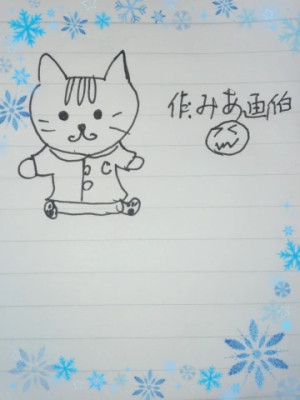 作.みあ画伯
C